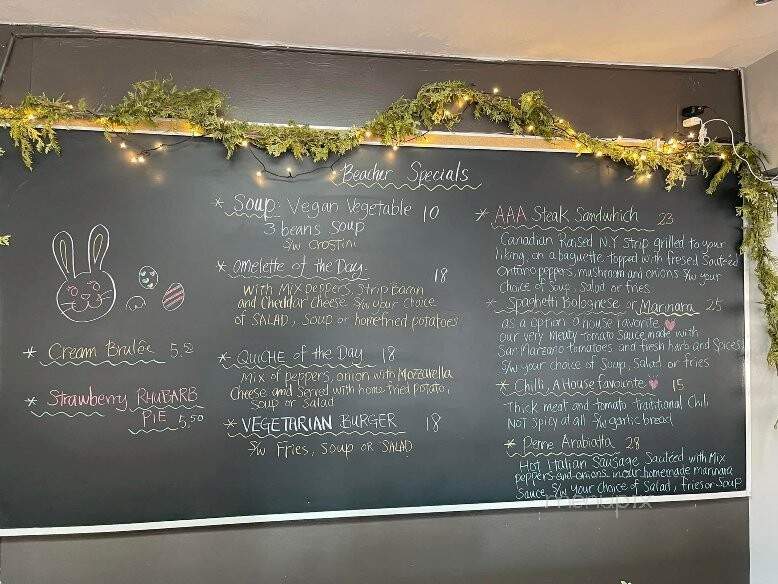 Beacher Specials
* Cream Brulée 5.5
* Strawberry RHUBARB
PIE 5,50
* Soup: Vegan Vegetable 10
3 beans soup
S/W crostini
* Omelette of the Day 18
With Mix peppers, Strip bacon
and Cheddar cheese S/w your choice
of SALAD, SOUP or homefried potatoes
* QuiCHE of the Day 18
Mix of peppers, onion with Mozzarella
Cheese and Served with home fried potato,
Soup or Salad
* VEGETARIAN BURGER 18
S/w Fries, Soup or SALAD
* AAA Steak Sandwhich 23
Canadian Raised N.Y strip grilled to your
liking, on a baguette topped with fresed Sautéed
Ontario peppers, mushroom and onions S/w your
choice of Soup, Salad or fries
* Spaghetti Bolognese or Marinara 25
as a option a house favorite
our very Meaty tomato Sauce made with
San Marzano tomatoes and fresh herb and Spices
S/w your choice of Soup, Salad or fries
* Chilli, A House favourite 15
Thick meat and tomato Traditional Chili
NOT Spicy at all S/w garlic bread
* Penne Arabiatta 28
Hot Italian Sausage Sautéed with Mix
peppers and onions in our homemade marinara
Sauce S/w your choice of Salad, fries or Soup
menupix